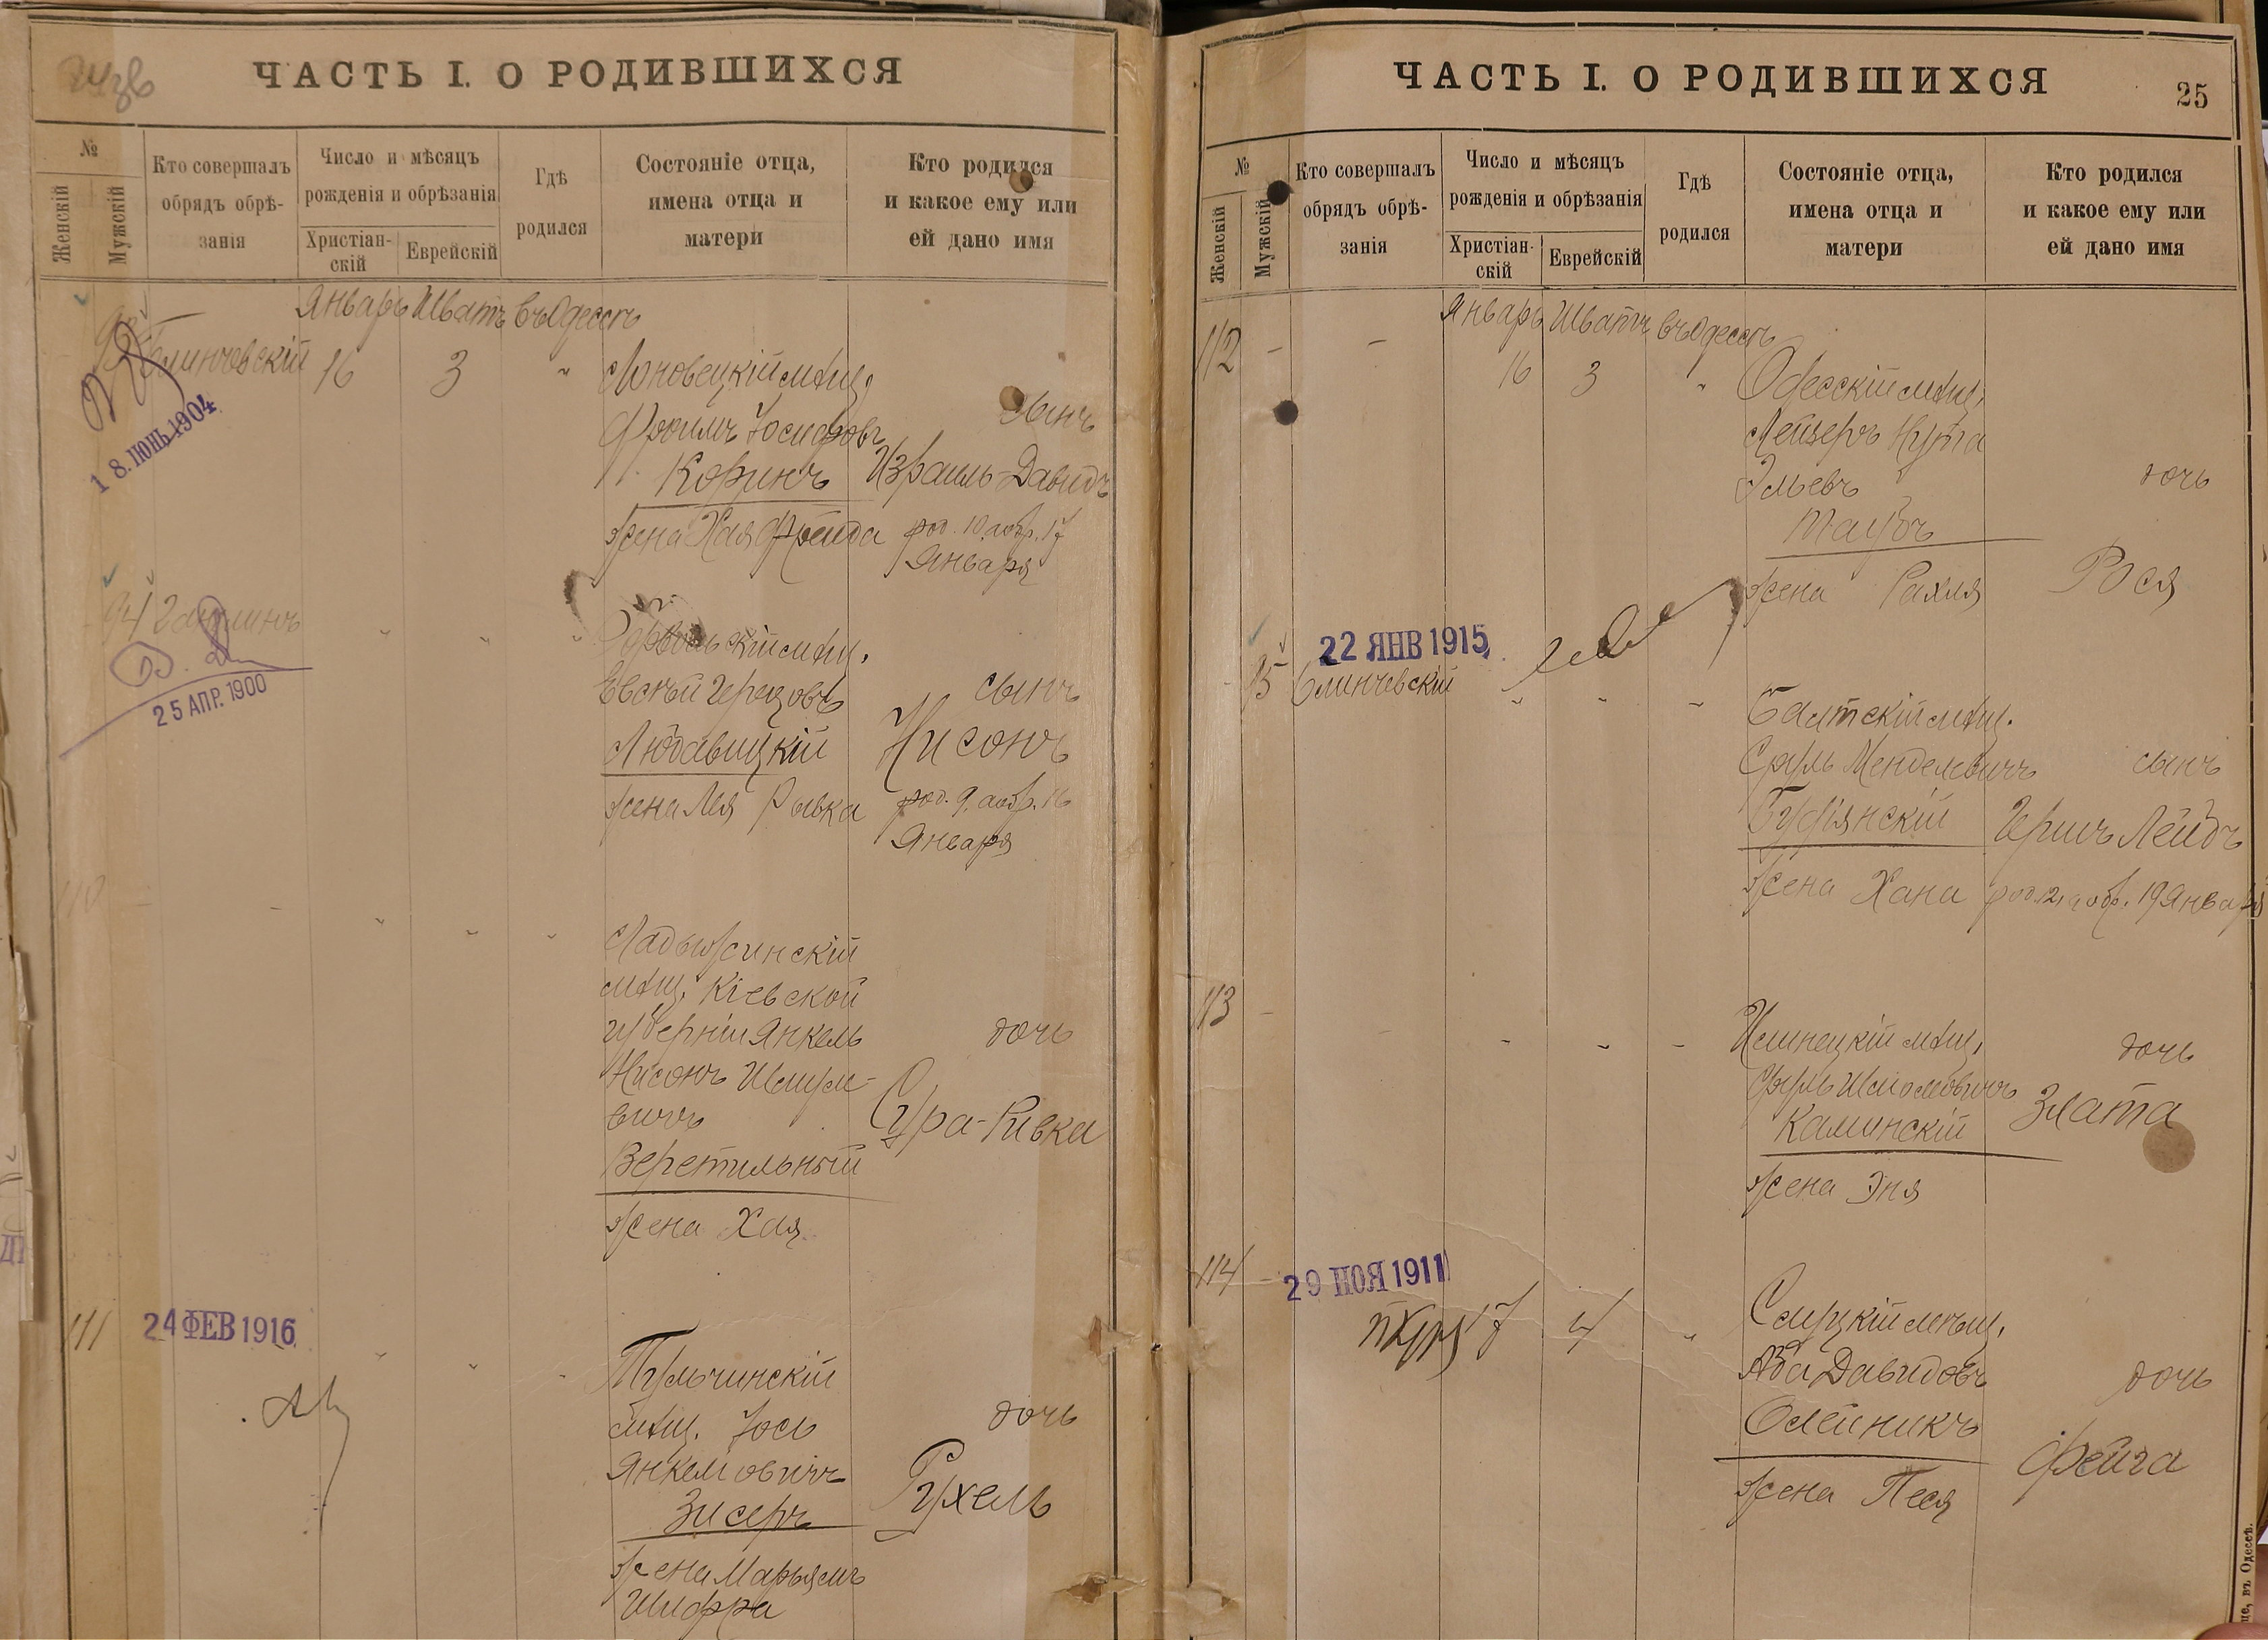 ЧАСТЬ I. О РОДИВШИХСЯ
№
Женскій
Мужскій
Кто совершалъ обрядъ обрѣ-
занія
Число и мѣсяцъ
рожденія и обрѣзанія
Христіан-
скій
Еврейскій
Гдѣ
родился
Состояніе отца,
имена отца и
матери
Кто родился
и какое ему или
ей дано имя
Январь Шватъ въ Одессѣ
93
16 3 "
мѣщ.
Фроимъ Юсифовъ
Кофинъ
жена Хая Фрейда
сынъ
Израиль-Давидъ
род. 10 аобр. 17
Января
18 ИЮНЬ 1904
94
мѣщ.
Евсѣй Герцовъ
Любавицкій
жена Лея Ривка
сынъ
Нисонъ
род. 9. аобр. 16
Января
25 АПР. 1900
110
Ладыжинскій
мѣщ. Кіевской
губерніи Янкель
Нисонъ Шмуле-
вичъ
Веретильный
жена Хая
дочь
Сура-Ривка
111
24 ФЕВ 1916
Тульчинскій
мѣщ. Юсь
Янкелювичъ
Зисеръ
жена Марьямъ
Шифра
дочь
Рухель
ЧАСТЬ I. О РОДИВШИХСЯ
25
№
Женскій
Мужскій
Кто совершалъ
обрядъ обрѣ-
занія
Число и мѣсяцъ
рожденія и обрѣзанія
Христіан-
скій
Еврейскій
Гдѣ
родился
Состояніе отца,
имена отца и
матери
Кто родился
и какое ему или
ей дано имя
Январь Шватъ въ Одессѣ
112 - -
16 3 "
Одесскій мѣщ.
Лейзеръ Нута
Эльевъ
Таубъ
жена Рахля
дочь
Рося
95
22 ЯНВ 1915
Балтскій мѣщ.
Сруль Менделевичъ
жена Хана
сынъ
Гершъ Лейбъ
род. 12, аобр. 19 Января
113 -
Илинецкій мѣщ.
Каминскій
жена Эня
дочь
Злата
114 -
29 НОЯ 1911
17 4 "
Слуцкій мѣщ.
Аба Давидовъ
Олейникъ
жена Песя
дочь
Фейга